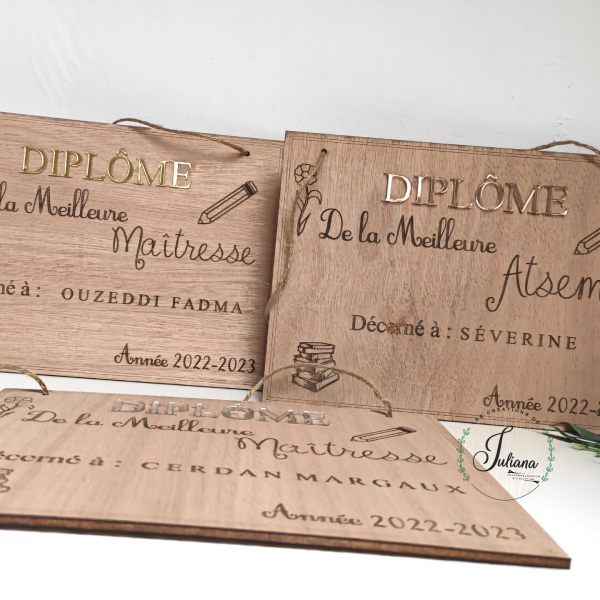 DIPLÔME
la Meilleure
Maîtresse
né à : OUZEDDI FADMA
Année 2022-2023
DIPLÔME
De la Meilleure
Atsem
Décerné à : SÉVERINE
Année 2022-2
DIPLÔME
De la Meilleure
Maîtresse
Décerné à : CERDAN MARGAUX
Année 2022-2023
LES CRÉATIONS DE
Juliana